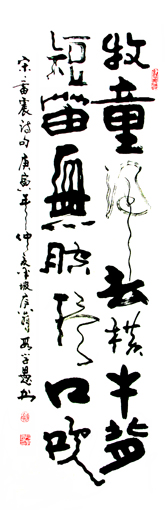 牧童歸去橫牛背
短笛無腔信口吹
宋雷震詩句庚寅年仲